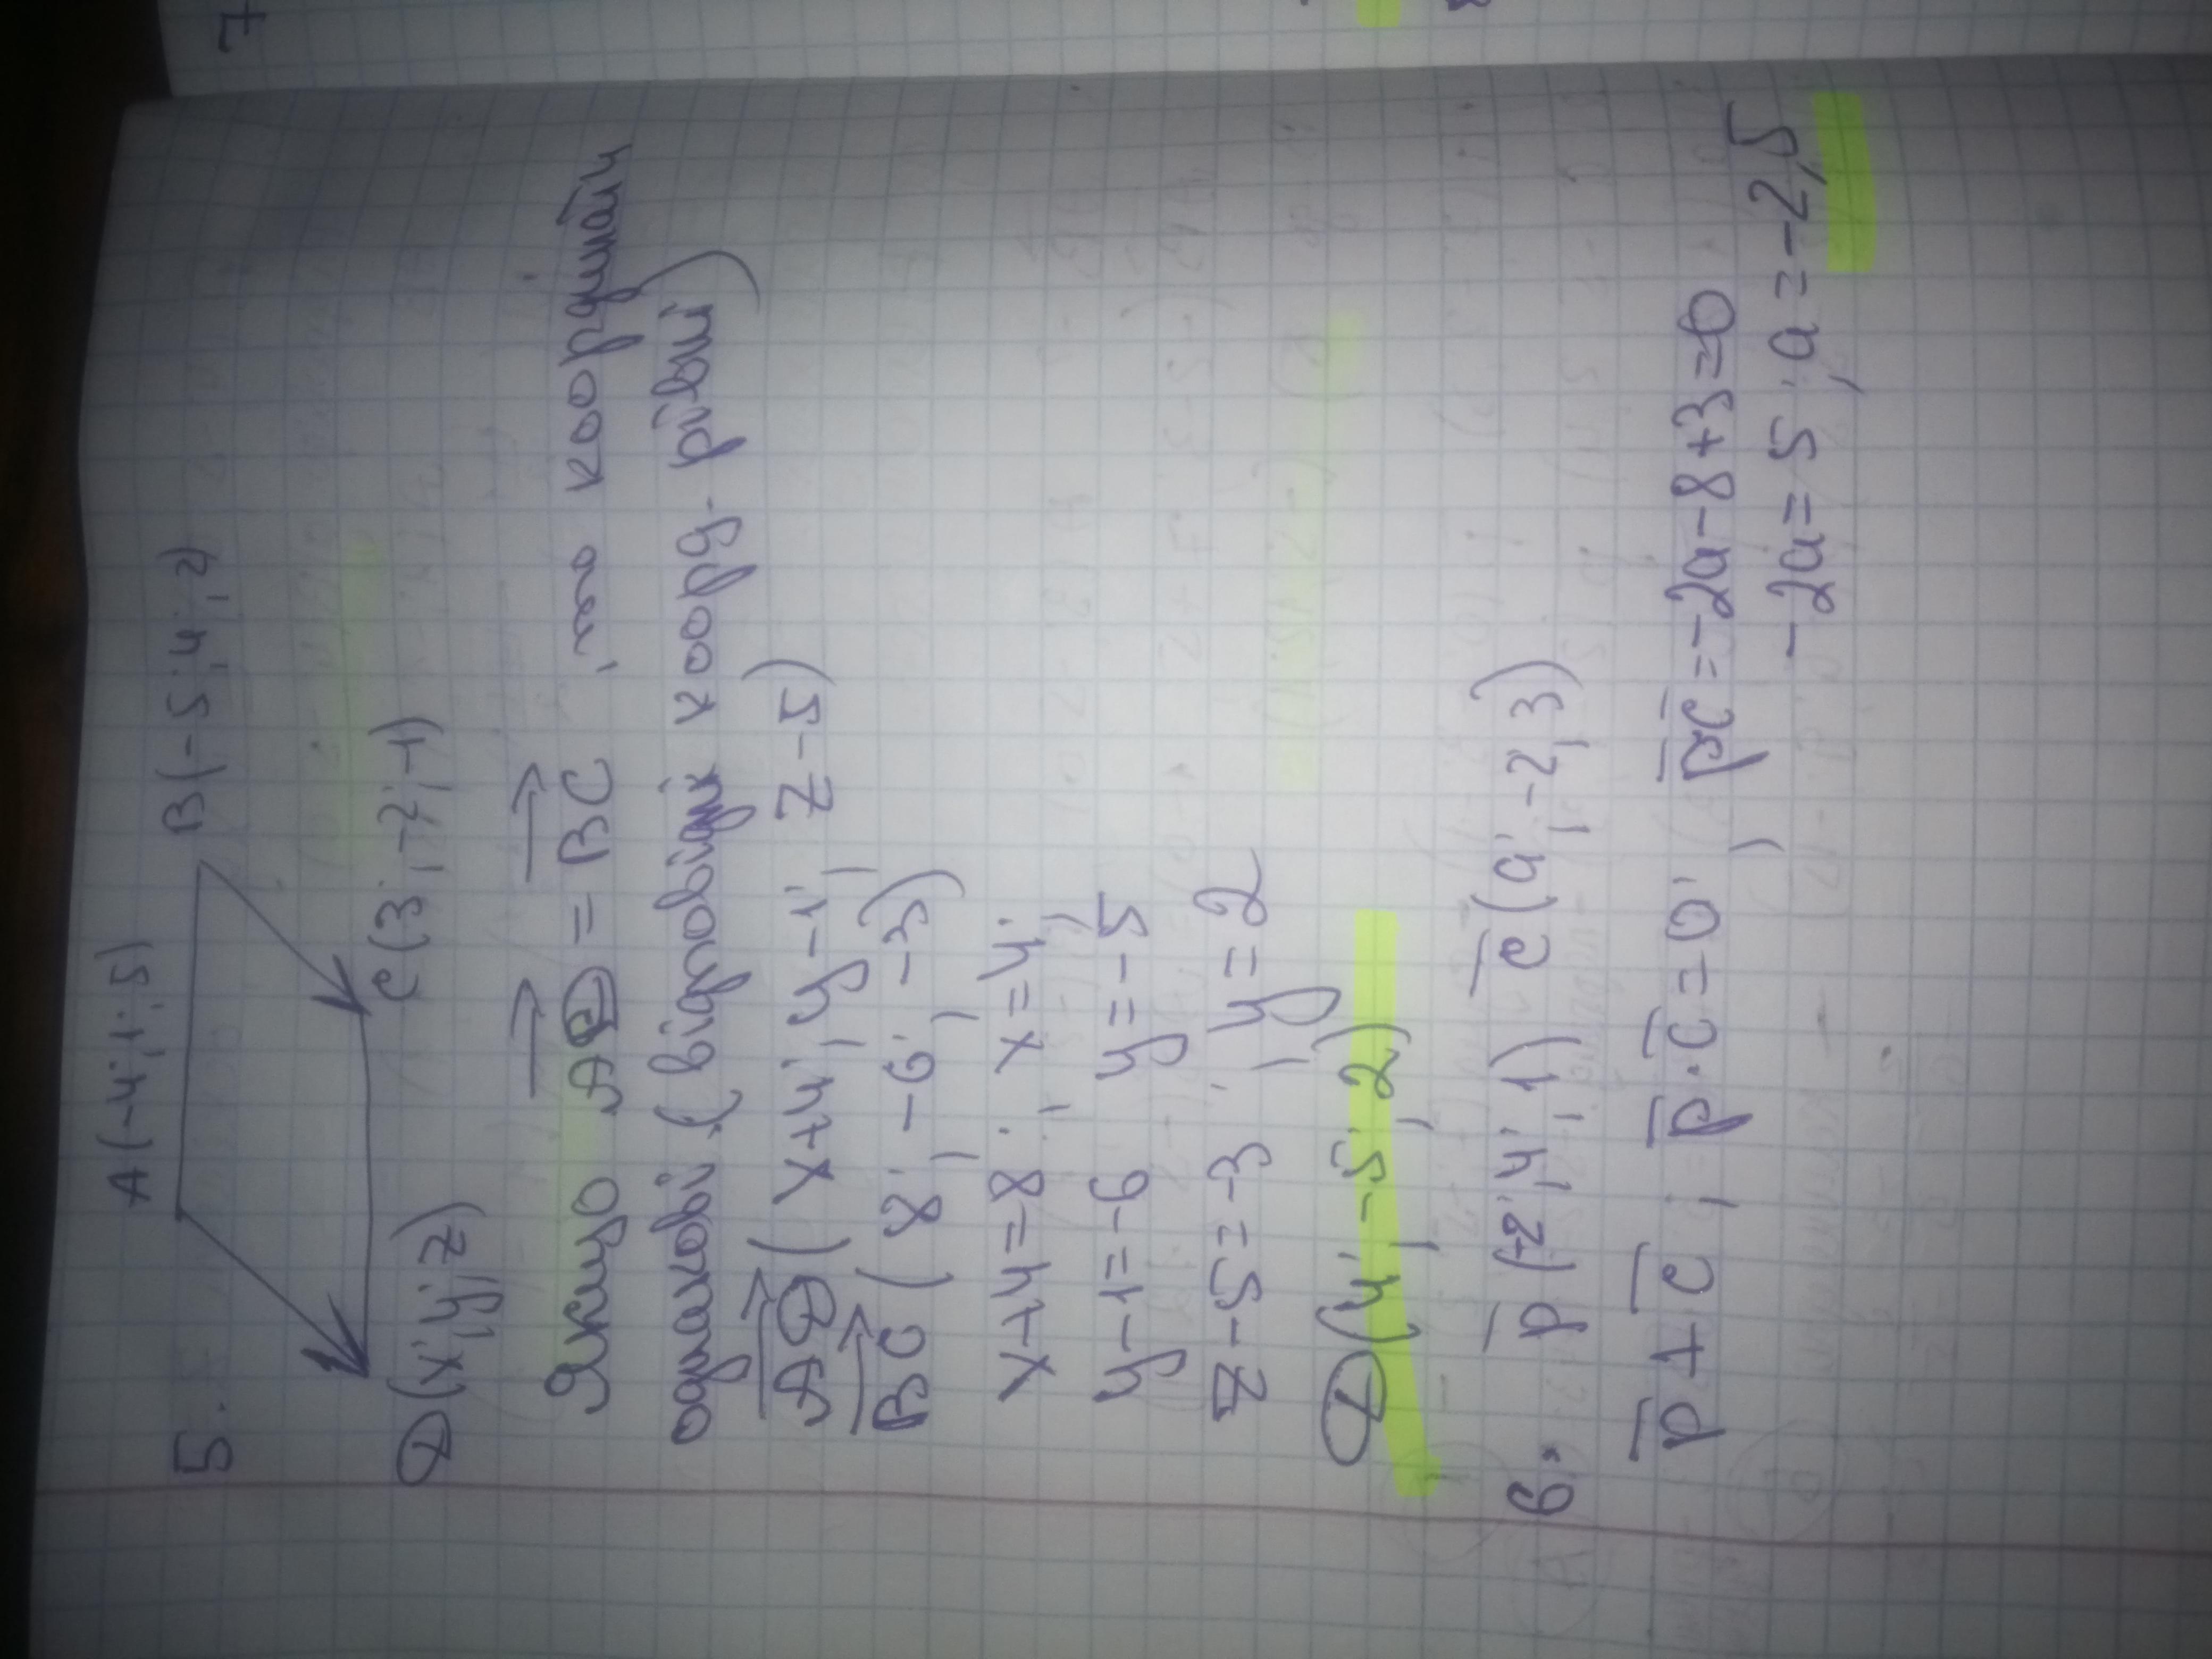 7
5.
A(-4;1;5)
B(-5;4;2)
C(3;-2;-1)
D(x;y;z)
Якщо AD = BC, то координати
однакові (відповідні коорд. рівні)
AD (x+4; y-1; z-5)
BC (8; -6; -3)
x+4=8; x=4;
y-1=-6 y=-5
z-5=-3; y=2
D(4; -5; 2)
6. p(-2;4;1) c(a;-2;3)
p⊥c; p·c=0; pc=-2a-8+3=0
-2a=5; a=-2,5